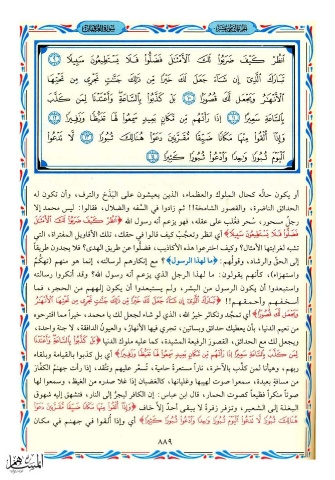 انظُرْ كَيْفَ ضَرَبُوا لَكَ الْأَمْثَالَ فَضَلُّوا فَلَا يَسْتَطِيعُونَ سَبِيلًا
تَبَارَكَ الَّذِي إِن شَاءَ جَعَلَ لَكَ خَيْرًا مِّن ذَٰلِكَ جَنَّاتٍ تَجْرِي مِن تَحْتِهَا
الْأَنْهَارُ وَيَجْعَل لَّكَ قُصُورًا بَلْ كَذَّبُوا بِالسَّاعَةِ وَأَعْتَدْنَا لِمَن كَذَّبَ
بِالسَّاعَةِ سَعِيرًا إِذَا رَأَتْهُم مِّن مَّكَانٍ بَعِيدٍ سَمِعُوا لَهَا تَغَيُّظًا وَزَفِيرًا
وَإِذَا أُلْقُوا مِنْهَا مَكَانًا ضَيِّقًا مُّقَرَّنِينَ دَعَوْا هُنَالِكَ ثُبُورًا لَّا تَدْعُوا
الْيَوْمَ ثُبُورًا وَاحِدًا وَادْعُوا ثُبُورًا كَثِيرًا
أو يكون حاله كحال الملوك والعظماء، الذين يعيشون على البذخ والترف، وأن تكون له
الحدائق الناضرة، والقصور الشامخة!! ثم زادوا في السفه والضلال، فقالوا: ليس محمد إلا
رجل مسحور، سحر فغلب على عقله، فهو يزعم أنه رسول الله ﴿انظُرْ كَيْفَ ضَرَبُوا لَكَ الْأَمْثَالَ
فَضَلُّوا فَلَا يَسْتَطِيعُونَ سَبِيلًا﴾ أي انظر وتعجب كيف قالوا في حقك، تلك الأقاويل المفتراة، التي
تشبه لغرابتها الأمثال؟ وكيف اخترعوا هذه الأكاذيب، فضلوا عن طريق الهدى؟ فلا يجدون طريقاً
إلى الحق والرشاد، وقولهم: ﴿ما لهذا الرسول﴾؟ مع إنكارهم لرسالته، إنما هو منهم (تهكم
واستهزاء)، كأنهم يقولون: ما لهذا الرجل الذي يزعم أنه رسول الله؟ وقد أنكروا رسالته
واستبعدوا أن يكون الرسول من البشر، ولم يستبعدوا أن يكون إلههم من الحجر، فما
أسخفهم وأحمقهم!! ﴿تَبَارَكَ الَّذِي إِن شَاءَ جَعَلَ لَكَ خَيْرًا مِّن ذَٰلِكَ جَنَّاتٍ تَجْرِي مِن تَحْتِهَا الْأَنْهَارُ
وَيَجْعَل لَّكَ قُصُورًا﴾ أي تمجد وتكاثر خير الله، الذي لو شاء لجعل لك يا محمد، خيراً مما اقترحوه
من نعيم الدنيا، بأن يعطيك حدائق وبساتين، تجري فيها الأنهار، والعيون الدافقة، لا جنة واحدة،
ويجعل لك مع الحدائق، القصور الرفيعة المشيدة، كما عليه ملوك الدنيا ﴿بَلْ كَذَّبُوا بِالسَّاعَةِ وَأَعْتَدْنَا
لِمَن كَذَّبَ بِالسَّاعَةِ سَعِيرًا إِذَا رَأَتْهُم مِّن مَّكَانٍ بَعِيدٍ سَمِعُوا لَهَا تَغَيُّظًا وَزَفِيرًا﴾ أي بل كذبوا بالقيامة وبلقاء
ربهم، وهيأنا لمن كذب بالآخرة، ناراً مستعرة حامية، تسعر عليهم وتتقد، إذا رأت جهنم الكفار
من مسافة بعيدة، سمعوا صوت لهيبها وغليانها، كالغضبان إذا غلا صدره من الغيظ، وسمعوا لها
صوتاً منكراً فظيعاً كصوت الحمار، قال ابن عباس: إن الكافر ليجر إلى النار، فتشهق إليه شهوق
البغلة إلى الشعير، وتزفر زفرة لا يبقى أحد إلا خاف ﴿وَإِذَا أُلْقُوا مِنْهَا مَكَانًا ضَيِّقًا مُّقَرَّنِينَ دَعَوْا
هُنَالِكَ ثُبُورًا لَّا تَدْعُوا الْيَوْمَ ثُبُورًا وَاحِدًا وَادْعُوا ثُبُورًا كَثِيرًا﴾ أي وإذا ألقوا في جهنم في مكان
٨٨٩